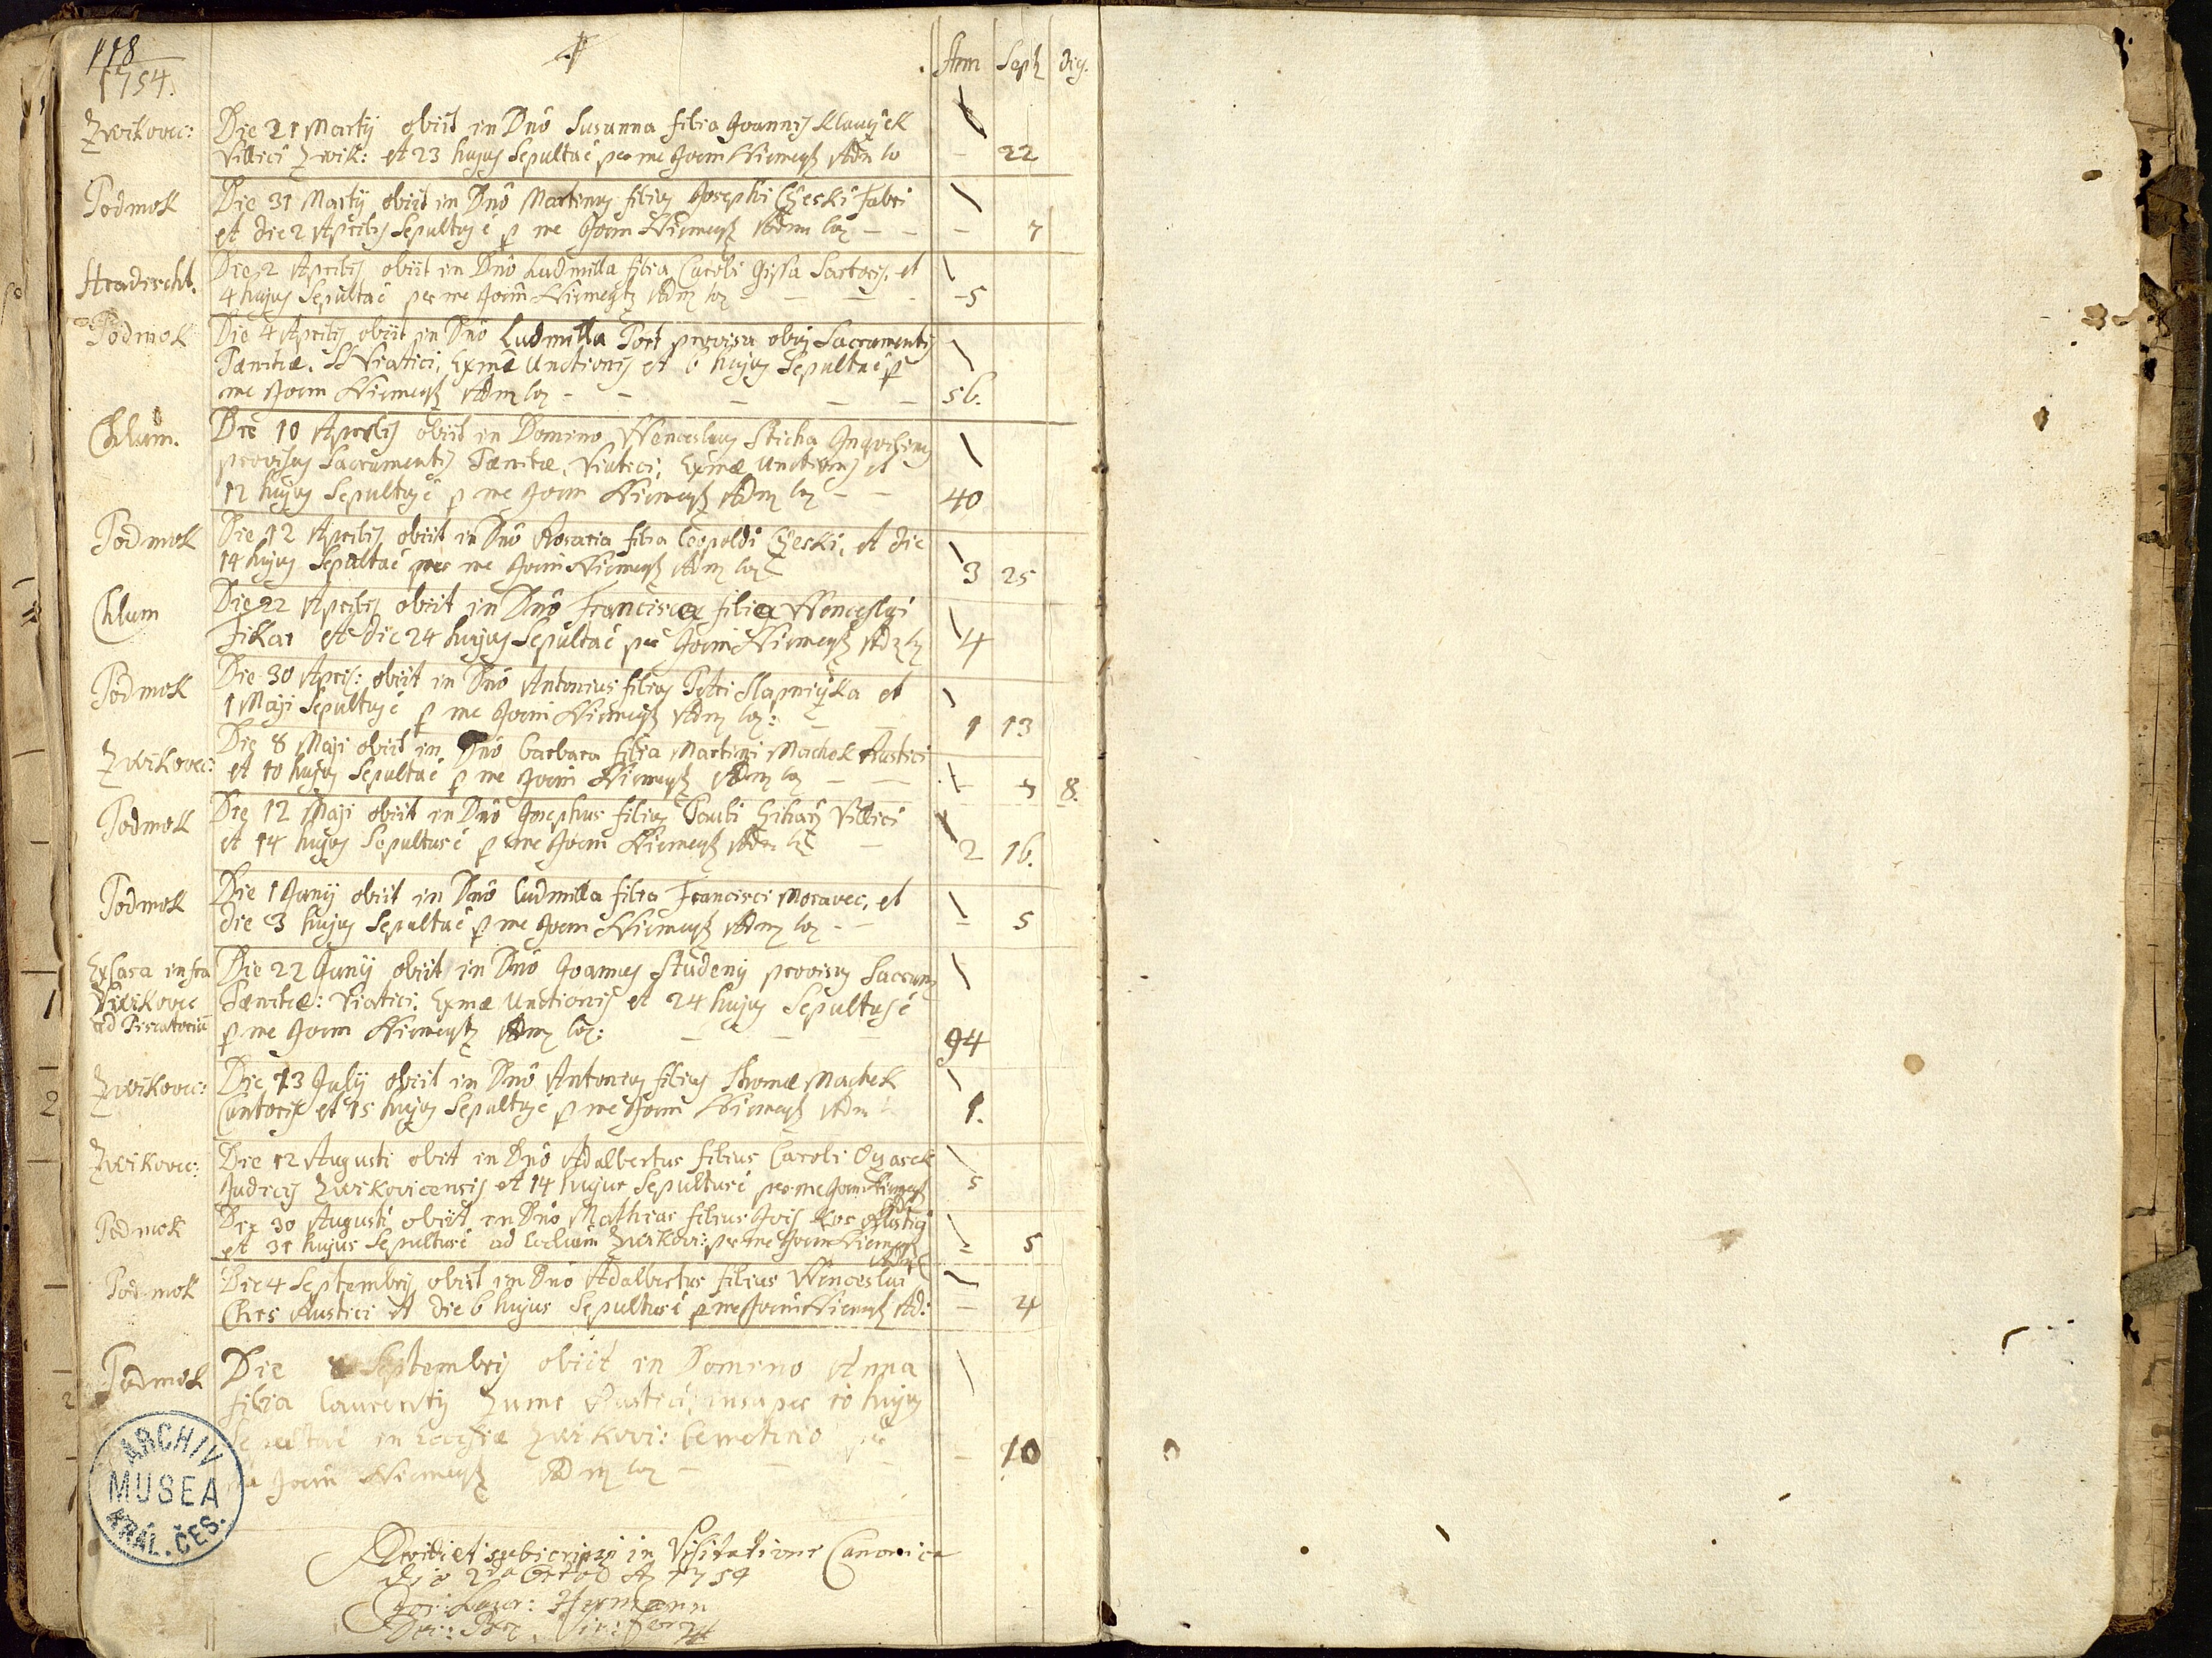 118
1754.
Ann Sept dig.
Zwikovec: Die 21 Martij obiit in Dnô Susanna filia Joannis Klauyčk
Villici Zwik: et 23 hujus Sepulta ê per me Joan Niemeyß Adm lo - 22
Podmok Die 31 Martij obiit in Dnô Martinus filius Josephi Cžeski Fabri
et die 2 Aprilis Sepultus ê p me Joan Niemeyß Adm loc - - - 7
Hradischt. Die 2 Aprilis obiit in Dnô Ludmilla filia Caroli Gissa Sartoris, et
4 hujus Sepulta ê per me Joan Niemeytz Adm loc - - - 5
Podmok Die 4 Aprilis obiit in Dnô Ludmilla Port provisa obijt Sacramentis
Pænitæ. S Viatici, Exmæ Unctionis et 6 hujus Sepulta ê p
me Joan Niemeyß Adm loc - - - - 56.
Chlum. Die 10 Aprilis obiit in Domino Wenceslaus Sticha
provisus Sacramentis Pænitæ, Viatici, Exmæ Unctionis et
12 hujus Sepultus ê p me Joan Niemeyß Adm loc - - 40
Podmok Die 12 Aprilis obiit in Dnô Rosaria filia Leopoldi Cžeski, et die
14 hujus Sepulta ê per me Joan Niemeyß Adm loc 3 25
Chlum Die 22 Aprilis obiit in Dnô Francisca filia Wenceslai
Fikar et die 24 hujus Sepulta ê per Joan Niemeyß Adm loc 4
Podmok Die 30 April: obiit in Dnô Antonius filius Petri Slapniýka et
1 Maji Sepultus ê p me Joan Niemeyß Adm loc: - - 1 13
Zwikovec: Die 8 Maji obiit in Dnô Barbara filia Martini Machek Rustici
et 10 hujus Sepulta ê p me Joan Niemeyß Adm loc - - 7 8.
Podmok Die 12 Maji obiit in Dnô Josephus filius Pauli Villici
et 14 hujus Sepultus ê p me Joan Niemeyß Adm loc - 2 16.
Podmok Die 1 Junij obiit in Dnô Ludmilla filia Francisci Moravec, et
die 3 hujus Sepulta ê p me Joan Niemeyß Adm loc - - = 5
Ex Casa infra Die 22 Junij obiit in Dnô Joannes Studený provisus Sacram
Zwikovec Pænitæ: Viatici, Exmæ Unctionis et 24 hujus Sepultus ê
ad Piscatorium p me Joan Niemeytz Adm loc: - - - 94
Zwikovec: Die 13 Julij obiit in Dnô Antonius filius Thomæ Machek
Cantoris et 15 hujus Sepultus ê p me Joan Niemeyß Adm 1.
Zwikovec: Die 12 Augusti obiit in Dnô Adalbertus filius Caroli
Judicis Zwikovicensis et 14 hujus Sepultus ê per me Joan Niemeyß 5
Adm
Podmok Die 30 Augusti obiit in Dnô Mathias filius Jois Kos Rustici
et 31 hujus Sepultus ê ad Ecclesiam Zwikovi: per me Joan Niemeyß = 5
Adm loc
Podmok Die 4 Septembris obiit in Dnô Adalbertus filius Wenceslai
Chres Rustici et die 6 hujus Sepultus ê p me Joan Niemeyß Ad: - 4
Podmok Die 8 Septembris obiit in Domino Anna
filia Laurentij Zume Rustici, insuper 10 hujus
Sepulta ê in Ecclesiæ Zwikovi: Cemeterio per - 10
me Joan Niemeyß Adm loc -
ARCHIV
MUSEA
KRÁL. ČES.
Revidi et subscripsi in Visitatione Canonica
die 2da Octob A 1754
Laur: Hermann
Vic: For